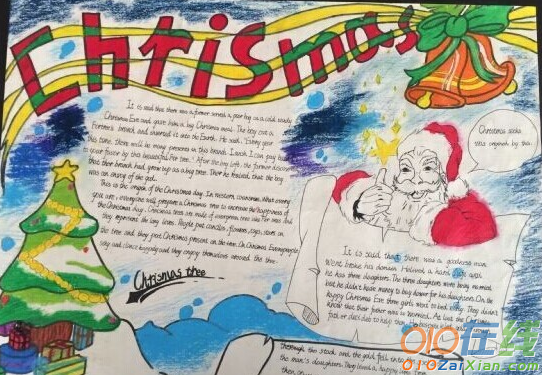 Christmas
It is said that there was a farmer served a poor boy on a cold snowy
Christmas Eve and gave him a big Christmas meal. The boy cut a
branch and inserted it into the Earth. He said, "Every year
this time, there will be many presents in this branch. I wish I can pay back
to your favor by this beautiful Fir tree." After the boy left, the farmer discovered
that their branch had grown up as a big tree. Then he realized that the boy
was an envoy of the god.
This is the origin of the Christmas day. In western countries, what
you are, everyone will prepare a Christmas tree to increase the happiness of
the Christmas day. Christmas tree are made of evergreen tree like
they represent the long lives. People put candles, flowers, toys, stars on
the tree and they put Christmas present on the tree. On Christmas Eve, people
sing and dance happily and they enjoy themselves around the tree.
Christmas tree
Christmas socks
was originate by this.
It is said that there was a goodness man
went broke his domain. He lived a hard life with
he has three daughters. The three daughters were being married,
but he didn't have money to buy dower for his daughters. On the
happy Christmas Eve three girls went to bed early. They didn't
know that their father was so worried. At last the Christmas
father decided to help them.
through the sock and the gold fell into
the man's daughters. They lived a happy
then on...
010在线
010ZaiXian.com